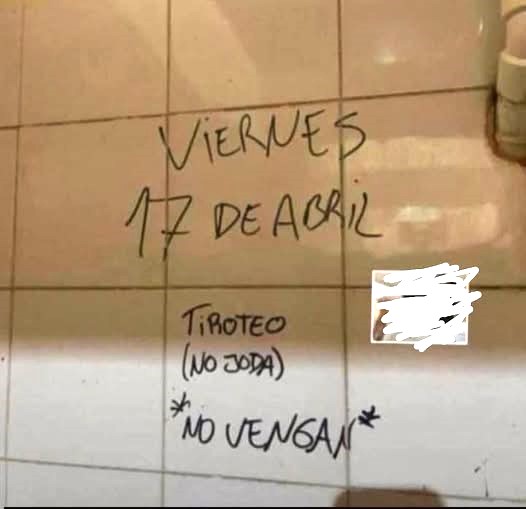 ViERNES
17 DE ABRiL
TiROTEO
(NO JODA)
*NO VENGAN*